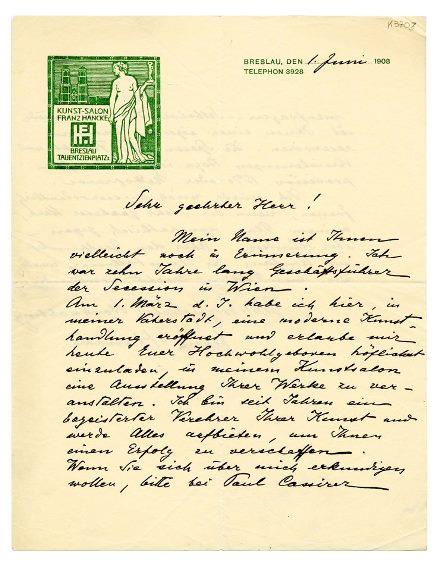 K3707
BRESLAU, DEN 1. Juni 1908
TELEPHON 3928
KUNST-SALON
FRANZ HANCKE
BRESLAU
TAUENTZIENPLATZ
Sehr geehrter Herr!
Mein Name ist Ihnen
vielleicht noch in Erinnerung. Ich
war zehn Jahre lang Geschäftsführer
der Secession in Wien.
Am 1. März d. J. habe ich hier, in
meiner Vaterstadt, eine moderne Kunst-
handlung eröffnet und erlaube mir
heute Euer Hochwohlgeboren höflichst
einzuladen, in meinem Kunstsalon
eine Ausstellung Ihrer Werke zu ver-
anstalten. Ich bin seit Jahren ein
begeisterter Verehrer Ihrer Kunst und
werde Alles aufbieten, um Ihnen
einen Erfolg zu verschaffen.
Wenn Sie sich über mich erkundigen
wollen, bitte bei Paul Cassirer